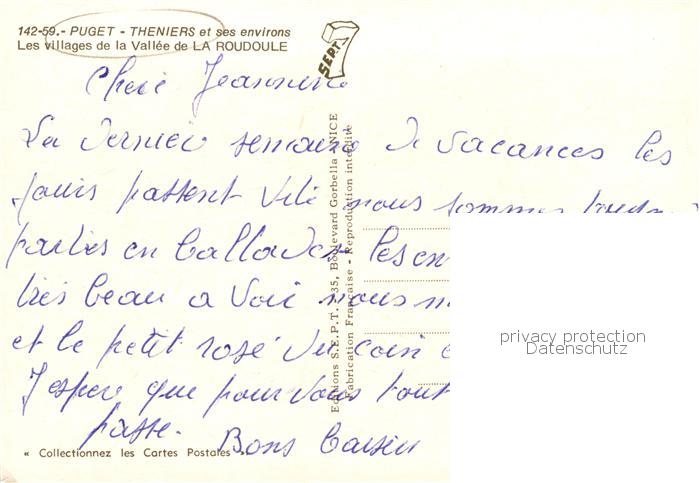 142-59.- PUGET - THENIERS et ses environs
Les villages de la Vallée de LA ROUDOULE
SEPT
Cheie Jeannine
La dernier semaine de vacances les
jours passent vite nous sommes toujours
parties en ballades. les en
très beau a voir nous
et le petit rosé du coin
J'espere que pour vous tout
passe. Bons baiser
« Collectionnez les Cartes Postales »
Editions S.E.P.T. - 35, Boulevard Gorbella - NICE
Fabrication Française - Reproduction interdite
privacy protection
Datenschutz